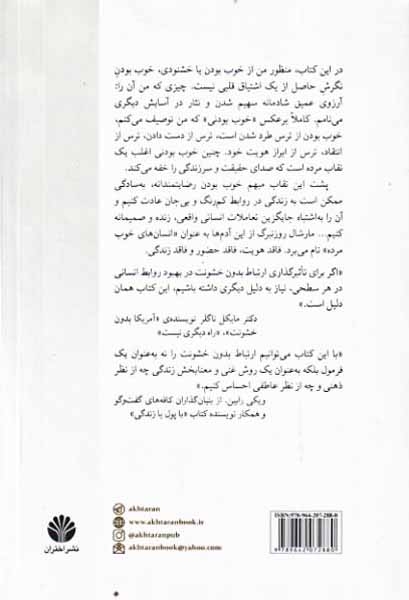 در این کتاب، منظور من از خوب بودن یا خشنودی، خوب بودنِ
نگرشِ حاصل از یک اشتیاق قلبی نیست. چیزی که من آن را:
آرزوی عمیق شادمانه سهیم شدن و نثار در آسایش دیگری
می‌نامم. کاملاً برعکس «خوب بودنی» که من توصیف می‌کنم،
خوب بودن از ترس طرد شدن است، ترس از دست دادن، ترس از
انتقاد، ترس از ابراز هویت خود. چنین خوب بودنی اغلب یک
نقاب مرده است که صدای حقیقت و سرزندگی را خفه می‌کند.
پشت این نقاب مبهم خوب بودن رضایتمندانه، به‌سادگی
ممکن است به زندگی در روابط کم‌رنگ و بی‌جان عادت کنیم و
آن را به‌اشتباه جایگزین تعاملات انسانی واقعی، زنده و صمیمانه
کنیم... مارشال روزنبرگ از این آدم‌ها به عنوان «انسان‌های خوب
مرده» نام می‌برد. فاقد هویت، فاقد حضور و فاقد زندگی.
«اگر برای تأثیرگذاری ارتباط بدون خشونت در بهبود روابط انسانی
در هر سطحی، نیاز به دلیل دیگری داشته باشیم، این کتاب همان
دلیل است.»
دکتر مایکل ناگلر نویسنده‌ی «آمریکا بدون
خشونت»، «راه دیگری نیست»
«با این کتاب می‌توانیم ارتباط بدون خشونت را نه به‌عنوان یک
فرمول بلکه به‌عنوان یک روش غنی و معنابخش زندگی چه از نظر
ذهنی و چه از نظر عاطفی احساس کنیم.»
ویکی رابین، از بنیان‌گذاران کافه‌های گفت‌وگو
و همکار نویسنده کتاب «یا پول یا زندگی»
نشر اختران
akhtaran
www.akhtaranbook.ir
@akhtaranpub
akhtaranbook@yahoo.com
ISBN: 978-964-207-288-0
9789642072880